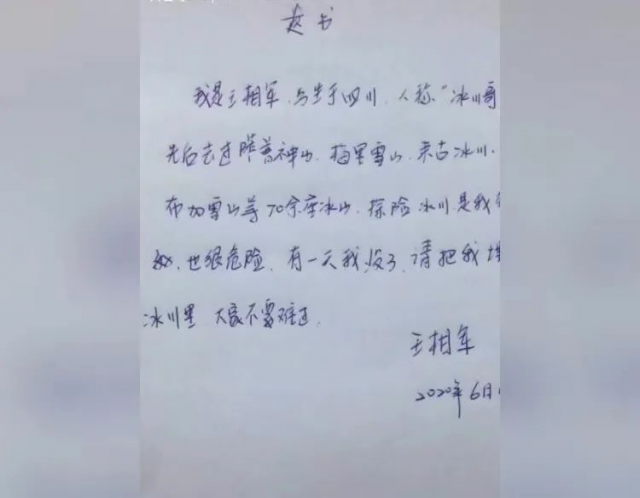 遗书
我是王相军,出生于四川,人称"冰川哥
先后去过神山、梅里雪山、来古冰川、
布加雪山等70余座冰山,探险冰川是我
也很危险,有一天我没了,请把我埋
冰川里 大家不要难过.
王相军
2020年6月